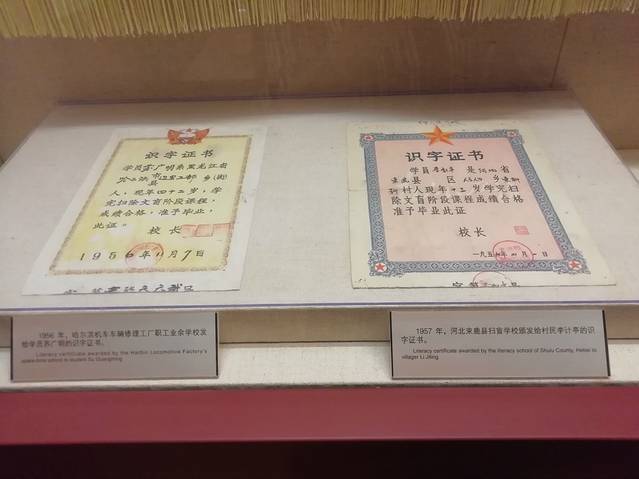 识字证书
学员苏广明系黑龙江省
市
县
人，现年四十二岁，学
完扫除文盲阶段课程，
成绩合格，准予毕业，
此证。
校长
1956年11月7日
识字证书
学员李计亭是河北省
束鹿县 区 乡
村人现年十三岁学完扫
除文盲阶段课程成绩合格
准予毕业此证
校长
一九五 年 月 日
1956 年，哈尔滨机车车辆修理工厂职工业余学校发
给学员苏广明的识字证书。
Literacy certificate awarded by the Harbin Locomotive Factory's
spare-time school to student Su Guangming
1957 年，河北束鹿县扫盲学校颁发给村民李计亭的识
字证书。
Literacy certificate awarded by the literacy school of Shulu County, Hebei to
villager Li Jiting